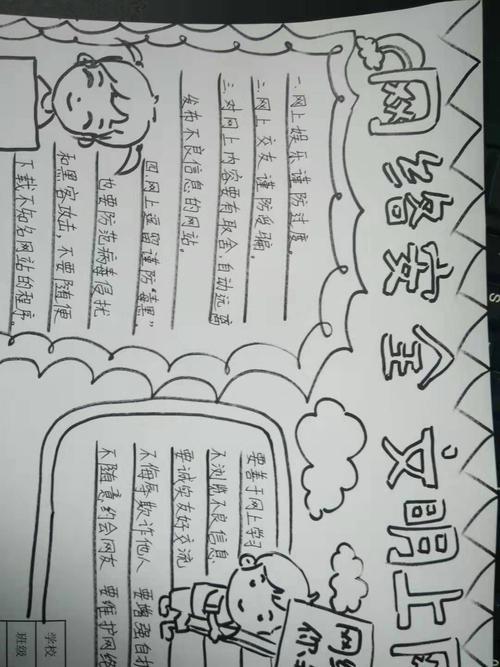 网络安全 文明上网
一.网上娱乐谨防过度。
二.网上交友谨防受骗。
三.对网上内容要有取舍,自动远离
发布不良信息的网站。
四.网上逗留谨防“毒黑”
也要防范病毒侵扰
和黑客攻击,不要随便
下载不知名网站的程序。
要善于网上学习
不浏览不良信息
要诚实友好交流
不侮辱欺诈他人 要增强自
不随意约会网友 要维护网络
学校
班级